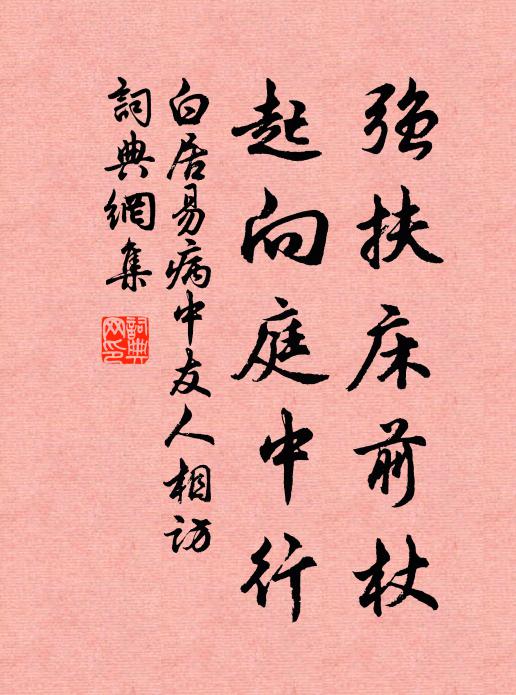 强扶床前杖
起向庭中行
白居易病中友人相訪
詞典網集
詞典网印